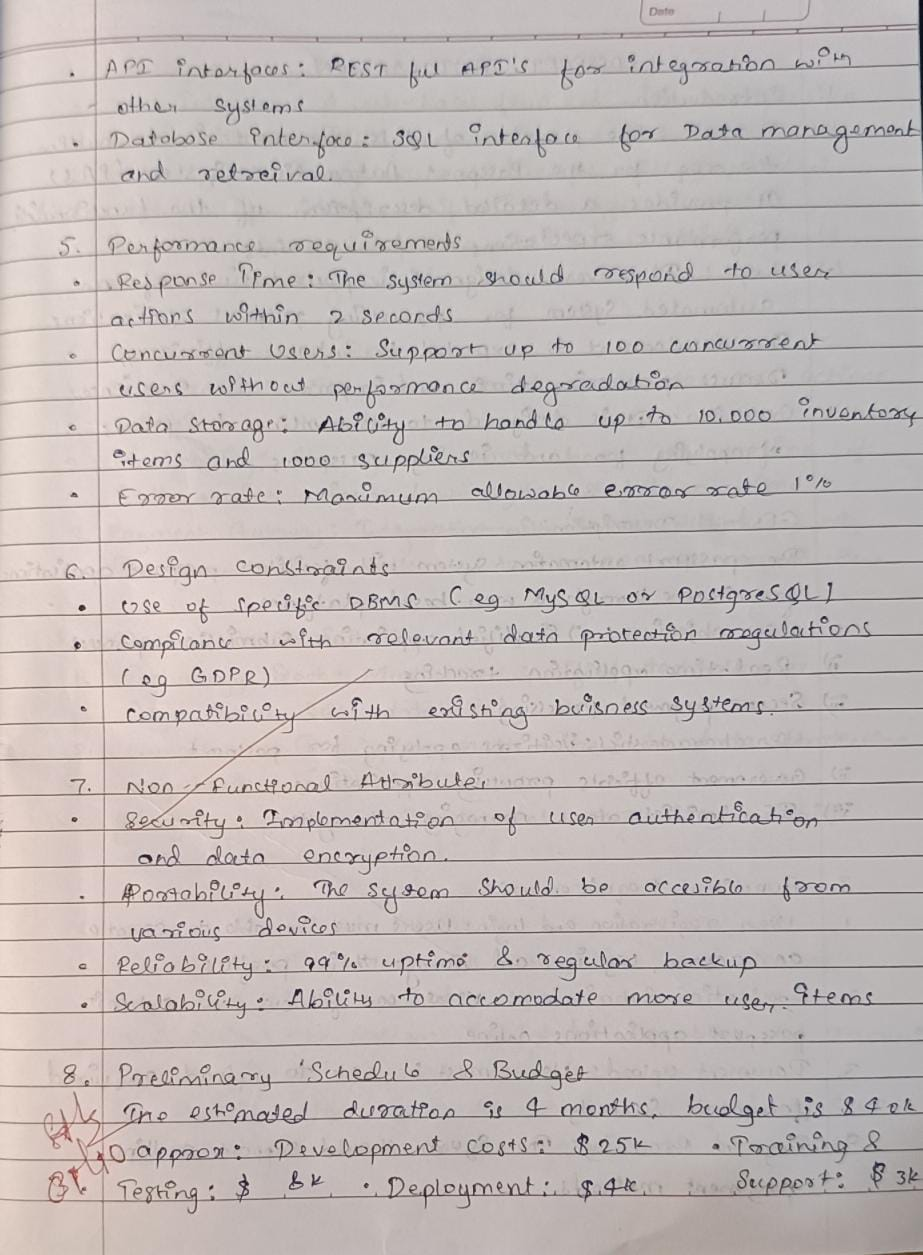 Date
• API interfaces: REST ful API's for integration with
other systems
• Database interface: SQL interface for Data management
and retreival.
5. Performance requirements
• Response Time: The system should respond to user
actions within 2 seconds
• Concurrent Users: Support up to 100 concurrent
users without performance degradation
• Data storage: Ability to handle up to 10,000 inventory
items and 1000 suppliers
• Error rate: Maximum allowable error rate 1%
6. Design constraints
• Use of specific DBMS (eg MySQL or PostgreSQL)
• Compilance with relevant data protection regulations
(eg GDPR)
• Compatibility with existing buisness systems.
7. Non-Functional Attribute.
• Security: Implementation of user authentication
and data encryption.
• Portability: The system should be accesible from
various devices
• Reliability: 99% uptime & regular backup
• Scalability: Ability to accomodate more user, items
8. Preliminary Schedule & Budget
The estimated duration is 4 months, budget is $40k
approx: Development costs: $25k • Training &
Testing: $ 8k • Deployment: $4k Support: $3k